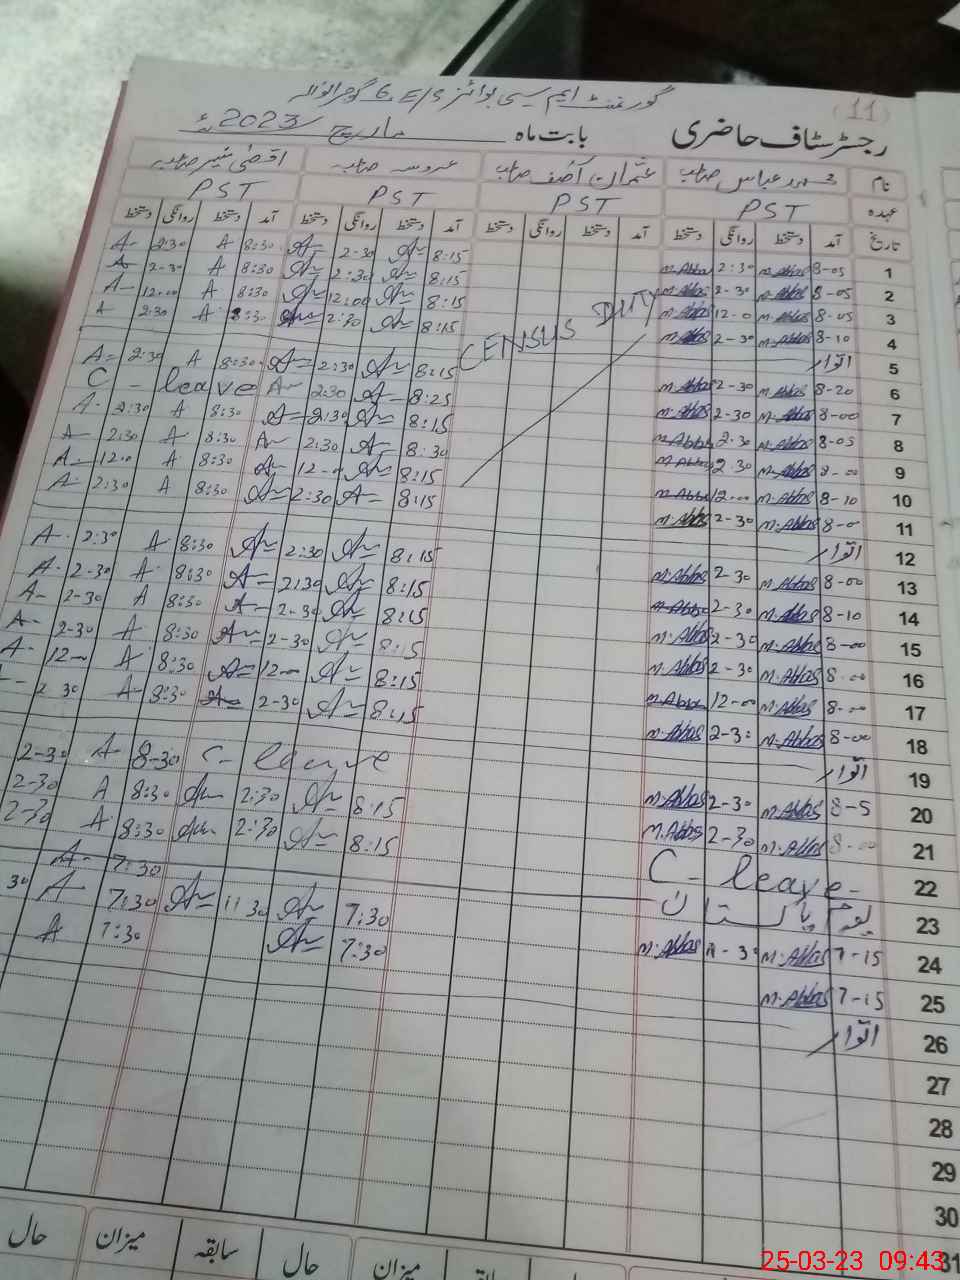 گورنمنٹ ایم سی بوائز G.E/S گوجرانوالہ
(11)
رجسٹر سٹاف حاضری بابت ماہ مارچ 2023ء
نام عباس صاحب عثمان آصف صاحب عروسہ صاحبہ اقصٰی منیر صاحبہ
عہدہ PST PST PST PST
تاریخ آمد دستخط روانگی دستخط آمد دستخط روانگی دستخط آمد دستخط روانگی دستخط آمد دستخط روانگی دستخط
1 8-05 M.Abbas 2:30 M.Abbas 8:15 A 2-30 A 8:30 A 2:30 A
2 8-05 M.Abbas 2-30 M.Abbas 8:15 A 2:30 A 8:30 A 2-30 A
3 8-05 M.Abbas 12-0 M.Abbas 8:15 A 12:00 A 8:30 A 12:00 A
4 8-10 M.Abbas 2-30 M.Abbas 8:15 A 2:30 A 8:30 A 2:30 A
CENSUS DUTY
5 اتوار
6 8-20 M.Abbas 2-30 M.Abbas 8:15 A 2:30 A 8:30 A 2:30 A
7 8-00 M.Abbas 2-30 M.Abbas 8:25 A 2:30 A C - leave
8 8-05 M.Abbas 2:30 M.Abbas 8:15 A 2:30 A 8:30 A 2:30 A
9 8-00 M.Abbas 2.30 M.Abbas 8:30 A 2:30 A 8:30 A 2:30 A
10 8-10 M.Abbas 12-00 M.Abbas 8:15 A 12-0 A 8:30 A 12-0 A
11 8-0 M.Abbas 2-30 M.Abbas 8:15 A 2:30 A 8:30 A 2:30 A
12 اتوار
13 8-00 M.Abbas 2-30 M.Abbas 8:15 A 2:30 A 8:30 A 2:30 A
14 8-10 M.Abbas 2-30 M.Abbas 8:15 A 2:30 A 8:30 A 2-30 A
15 8-00 M.Abbas 2-30 M.Abbas 8:15 A 2-30 A 8:30 A 2-30 A
16 8-00 M.Abbas 2-30 M.Abbas 8:15 A 2-30 A 8:30 A 2-30 A
17 8-00 M.Abbas 12-00 M.Abbas 8:15 A 12-00 A 8:30 A 12- A
18 8-00 M.Abbas 2-30 M.Abbas 8:15 A 2-30 A 8:30 A 2 30
19 اتوار
20 8-5 M.Abbas 2-30 M.Abbas C - leave 8-30 A 2-30
21 8-00 M.Abbas 2-30 M.Abbas 8:15 A 2:30 8:30 A 2-30
22 C - leave 8:15 A 2:30 8:30 A 2-30
23 یوم پاکستان 7:30 A
24 7-15 M.Abbas 11-30 M.Abbas 7:30 A 11 30 A 7:30 A 30
25 7-15 M.Abbas 7:30 A 7:30 A
26 اتوار
27
28
29
30
31
حال میزان سابقہ حال میزان سابقہ
25-03-23 09:43